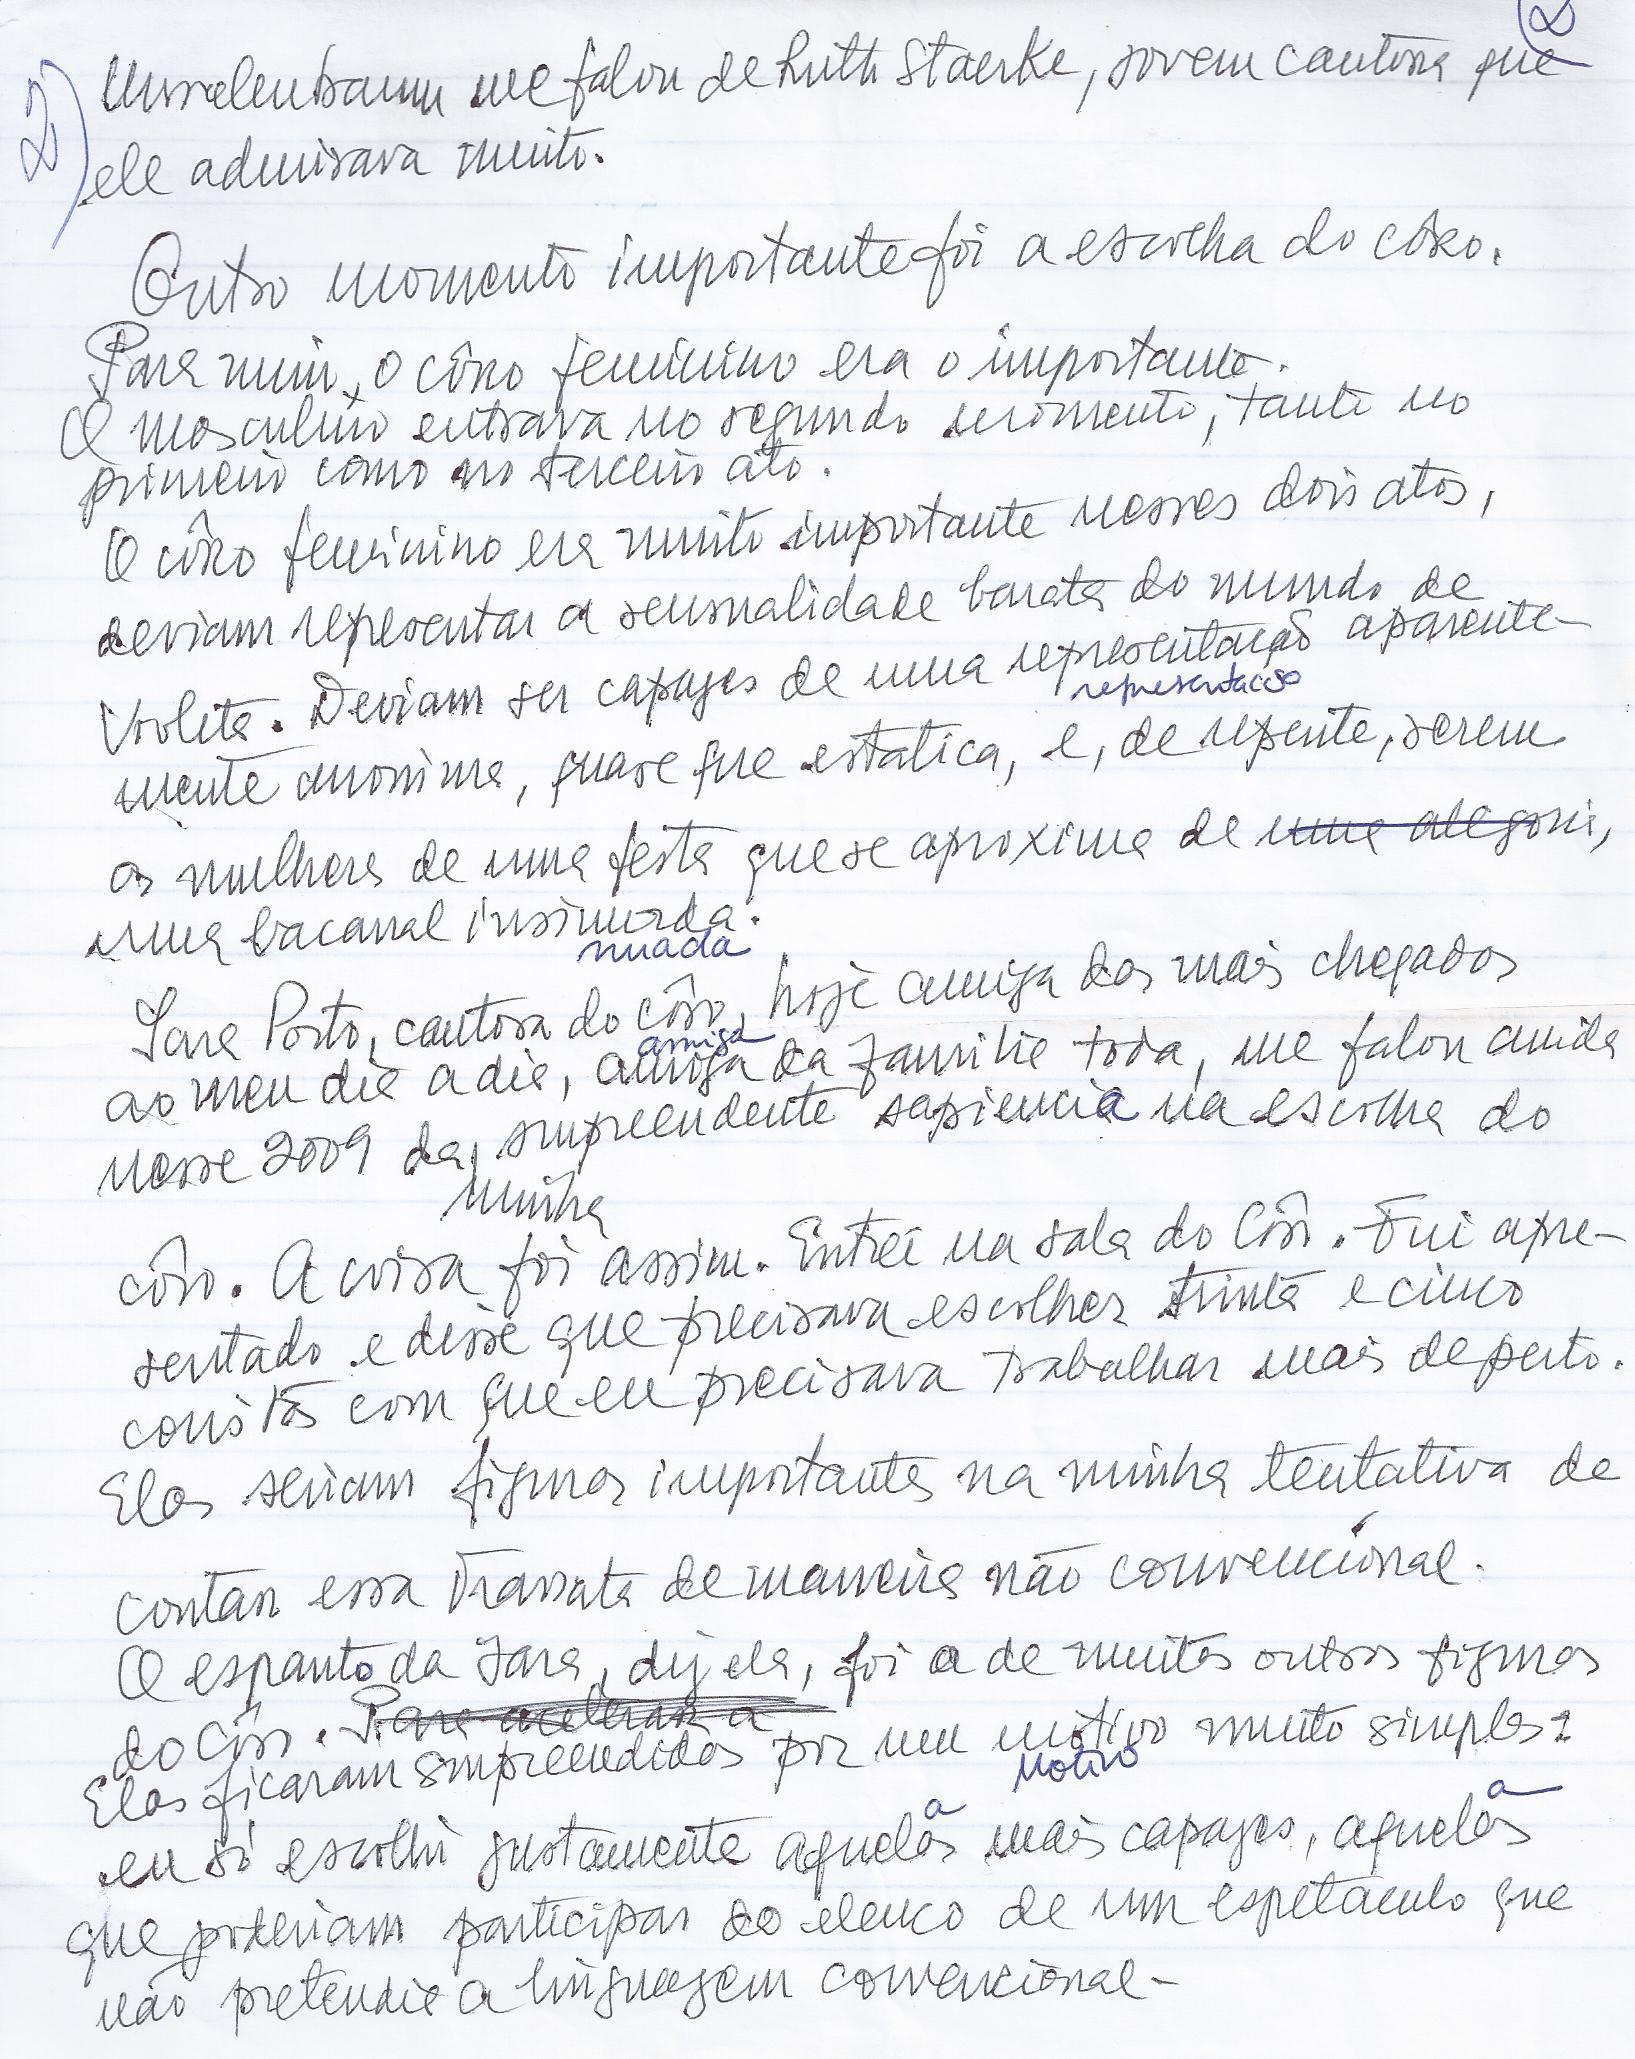 2) 2
me falou de Ruth Staerke, jovem cantora que
ele admirava muito.
Outro momento importante foi a escolha do côro.
Para mim, o côro feminino era o importante.
O masculino entrava no segundo momento, tanto no
primeiro como no terceiro ato.
O côro feminino era muito importante nesses dois atos,
deviam representar a sensualidade barata do mundo de
Violeta. Deviam ser capazes de uma representação aparente-
representação
mente anonima, quase que estatica, e, de repente, serem
as mulheres de uma festa que se aproxima de uma alegoria,
uma bacanal insinuada.
nuada
Iara Porto, cantora do côro, hoje amiga das mais chegadas
amiga
ao meu dia a dia, amiga da familia toda, me falou ainda
nesse 2009 da surpreendente sapiencia na escolha do
minha
côro. A coisa foi assim. Entrei na sala do Côro. Fui apre-
sentado e disse que precisava escolher trinta e cinco
coristas com que eu precisava trabalhar mais de perto.
Elas seriam figuras importantes na minha tentativa de
contar essa Traviata de maneira não convencional.
O espanto da Iara, diz ela, foi o de muitas outras figuras
do Côro. Para acelerar a
Elas ficaram surpreendidas por um motivo muito simples:
motivo
eu só escolhi justamente aquelas mais capazes, aquelas
a a
que poderiam participar do elenco de um espetaculo que
não pretendia a linguagem convencional -